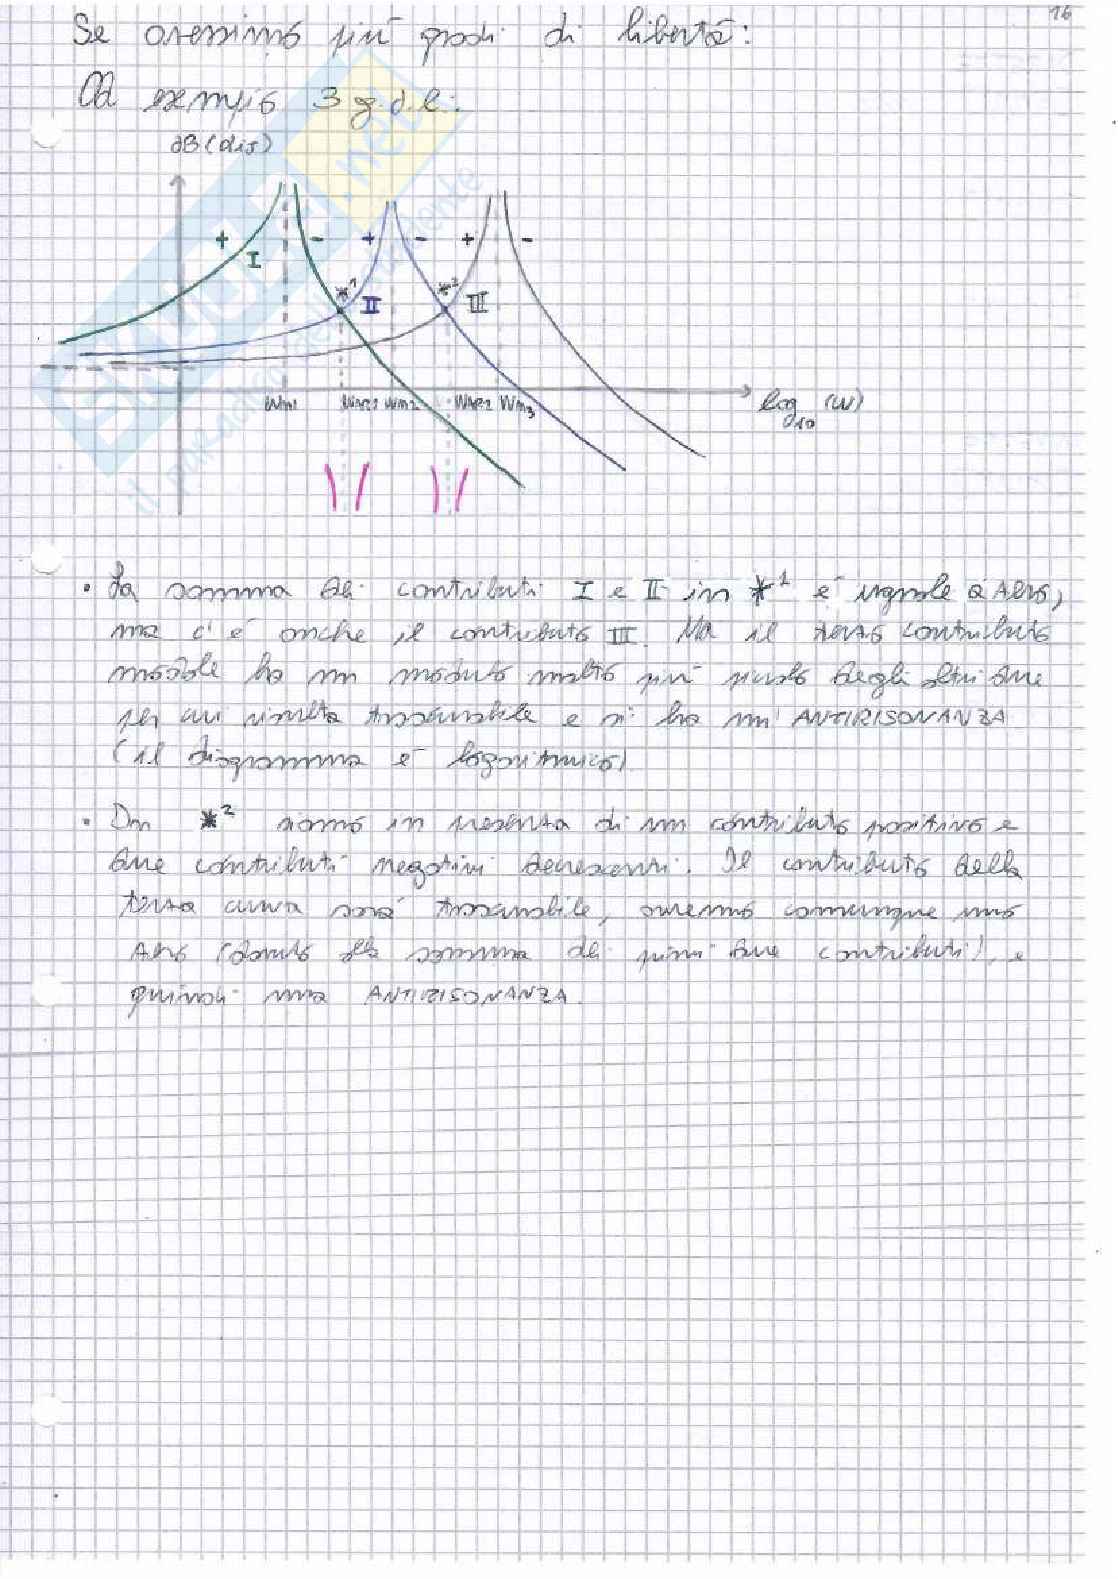 16
Se avessimo più gradi di libertà:
Ad esempio 3 g.d.l.:
dB (dis)
+ I - + - + -
*1 II *2 III
Wn1 WAR1 Wn2 WAR2 Wn3 log10 (W)
SKUOLA.net
il paradiso dello studente
• La somma dei contributi I e II in *1 è uguale a zero,
ma c'è anche il contributo III. Ma il terzo contributo
modale ha un modulo molto più piccolo degli altri due
per cui risulta trascurabile e si ha un' ANTIRISONANZA
(il diagramma è logaritmico).
• In *2 siamo in presenza di un contributo positivo e
due contributi negativi decrescenti. Il contributo della
terza curva sarà trascurabile, avremo comunque uno
zero (dovuto alla somma dei primi due contributi), e
quindi una ANTIRISONANZA.